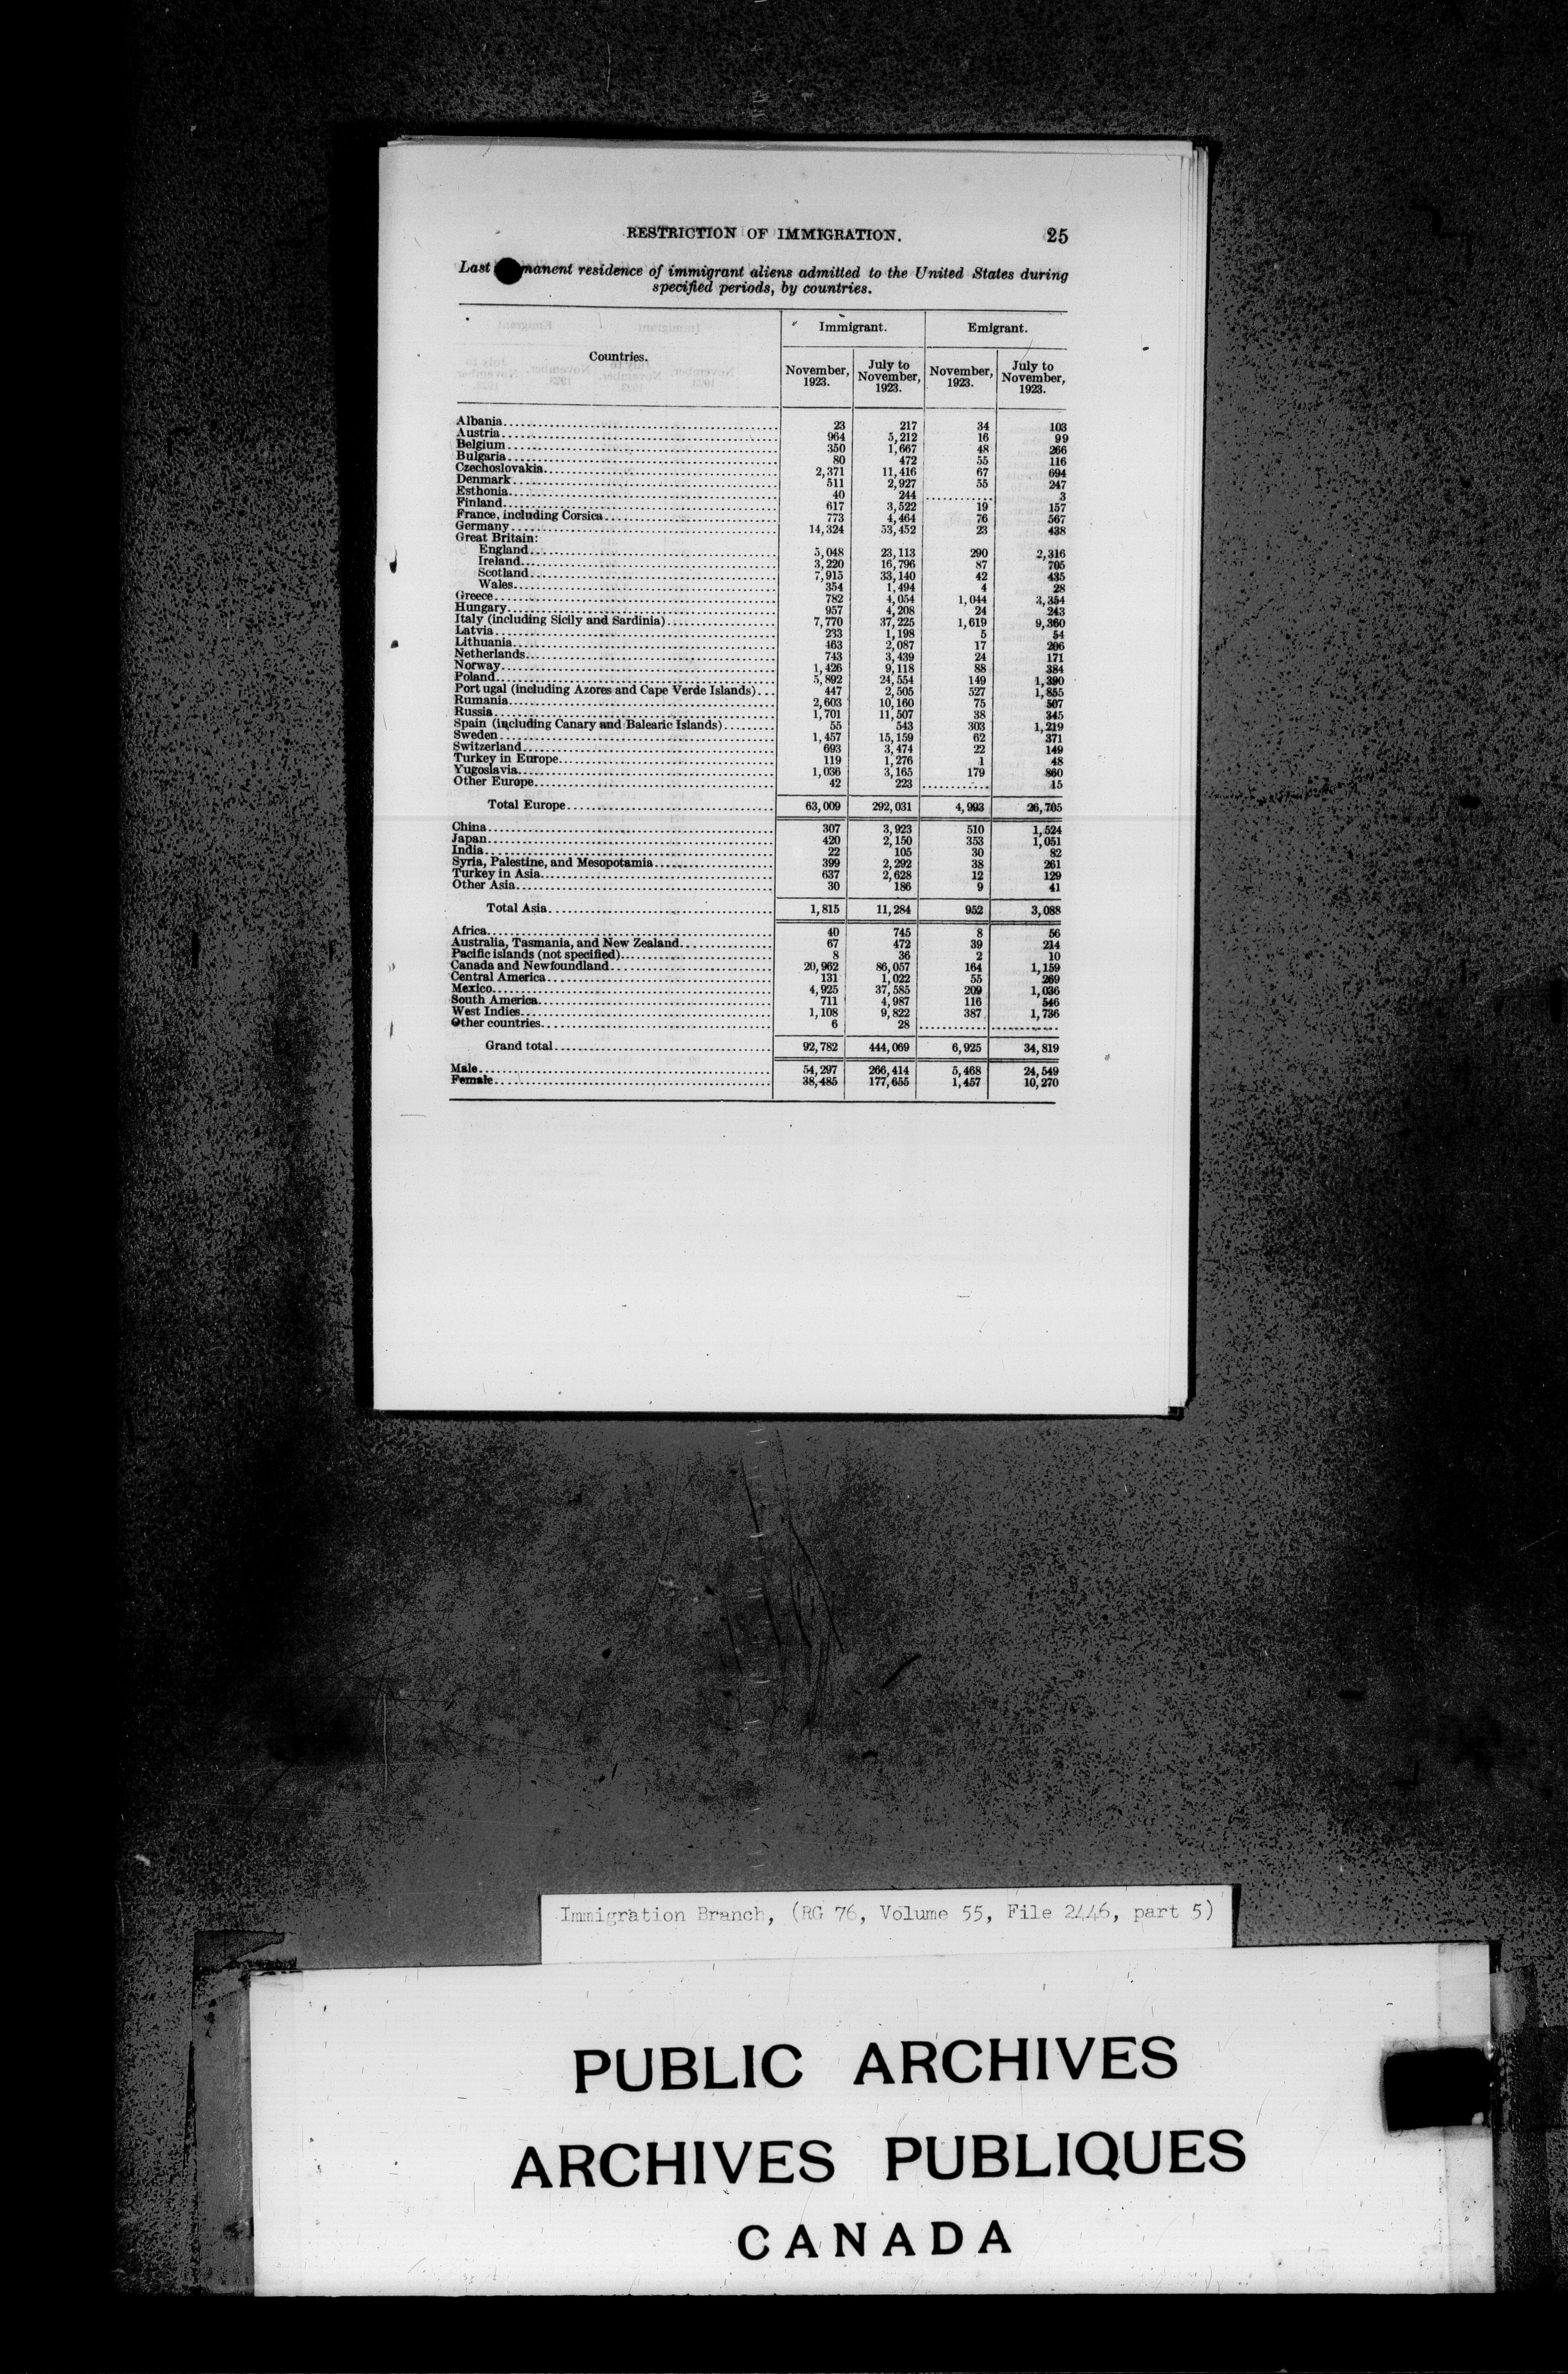 RESTRICTION OF IMMIGRATION. 25
Last manent residence of immigrant aliens admitted to the United States during
specified periods, by countries.
Countries. Immigrant. Emigrant.
November, 1923. July to November, 1923. November, 1923. July to November, 1923.
Albania 23 217 34 103
Austria 964 5,212 16 99
Belgium 350 1,667 48 266
Bulgaria 80 472 55 116
Czechoslovakia 2,371 11,416 67 694
Denmark 511 2,927 55 247
Esthonia 40 244 3
Finland 617 3,522 19 157
France, including Corsica 773 4,464 76 567
Germany 14,324 53,452 23 438
Great Britain:
England 5,048 23,113 290 2,316
Ireland 3,220 16,796 87 705
Scotland 7,915 33,140 42 435
Wales 354 1,494 4 28
Greece 782 4,054 1,044 3,354
Hungary 957 4,208 24 243
Italy (including Sicily and Sardinia) 7,770 37,225 1,619 9,360
Latvia 233 1,198 5 54
Lithuania 463 2,087 17 206
Netherlands 743 3,439 24 171
Norway 1,426 9,118 88 384
Poland 5,892 24,554 149 1,390
Portugal (including Azores and Cape Verde Islands) 447 2,505 527 1,855
Rumania 2,603 10,160 75 507
Russia 1,701 11,507 38 345
Spain (including Canary and Balearic Islands) 55 543 303 1,219
Sweden 1,457 15,159 62 371
Switzerland 693 3,474 22 149
Turkey in Europe 119 1,276 1 48
Yugoslavia 1,036 3,165 179 860
Other Europe 42 223 15
Total Europe 63,009 292,031 4,993 26,705
China 307 3,923 510 1,524
Japan 420 2,150 353 1,051
India 22 105 30 82
Syria, Palestine, and Mesopotamia 399 2,292 38 261
Turkey in Asia 637 2,628 12 129
Other Asia 30 186 9 41
Total Asia 1,815 11,284 952 3,088
Africa 40 745 8 56
Australia, Tasmania, and New Zealand 67 472 39 214
Pacific islands (not specified) 8 36 2 10
Canada and Newfoundland 20,962 86,057 164 1,159
Central America 131 1,022 55 269
Mexico 4,925 37,585 209 1,036
South America 711 4,987 116 546
West Indies 1,108 9,822 387 1,736
Other countries 6 28
Grand total 92,782 444,069 6,925 34,819
Male 54,297 266,414 5,468 24,549
Female 38,485 177,655 1,457 10,270
Immigration Branch, (RG 76, Volume 55, File 2446, part 5)
PUBLIC ARCHIVES
ARCHIVES PUBLIQUES
CANADA